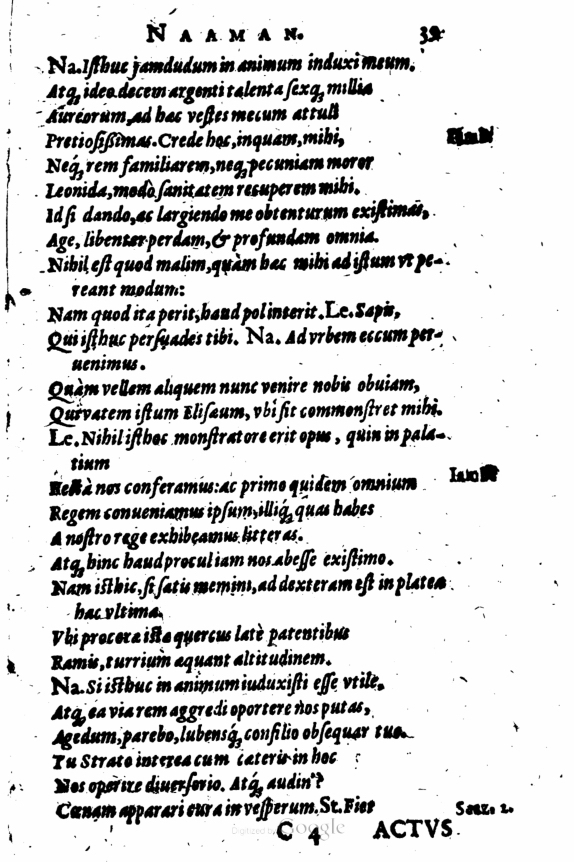 NAAMAN. 39
Na. Isthuc jamdudum in animum induxi meum.
Atq; ideo decem argenti talenta sexq; millia
Aureorum, ad hac vestes mecum attuli
Pretiosissimas. Crede hoc, inquam, mihi,
Neq; rem familiarem, neq; pecuniam moror
Leonida, modò sanitatem recuperem mihi.
Id si dando, ac largiendo me obtenturum existimas,
Age, libenter perdam, & profundam omnia.
Nihil est quod malim, quàm hac mihi ad istum vt pe-
reant modum:
Nam quod ita perit, haud pol interit. Le. Sapis,
Qui isthuc persuades tibi. Na. Ad vrbem eccum per-
uenimus.
Quàm vellem aliquem nunc venire nobis obuiam,
Qui vatem istum Elisæum, vbi sit commonstret mihi.
Le. Nihil isthoc monstratore erit opus, quin in pala-
tium
Rectà nos conferamus: ac primo quidem omnium
Regem conueniamus ipsum, illiq; quas habes
A nostro rege exhibeamus litteras.
Atq; hinc haud procul iam nos abesse existimo.
Nam isthic, si satis memini, ad dexteram est in platea
hac vltima,
Vbi procera ista quercus latè patentibus
Ramis, turrium aquant altitudinem.
Na. Si isthuc in animum iuduxisti esse vtile,
Atq; ea via rem aggredi oportere nos putas,
Agedum, parebo, lubensq; consilio obsequar tuo.
Tu Strato interea cum cateris in hoc
Nos operire diuersorio. Atq; audin'?
Cœnam apparari cura in vesperum. St. Fiet
Senar. 2.
C 4 ACTVS.
Digitized by Google